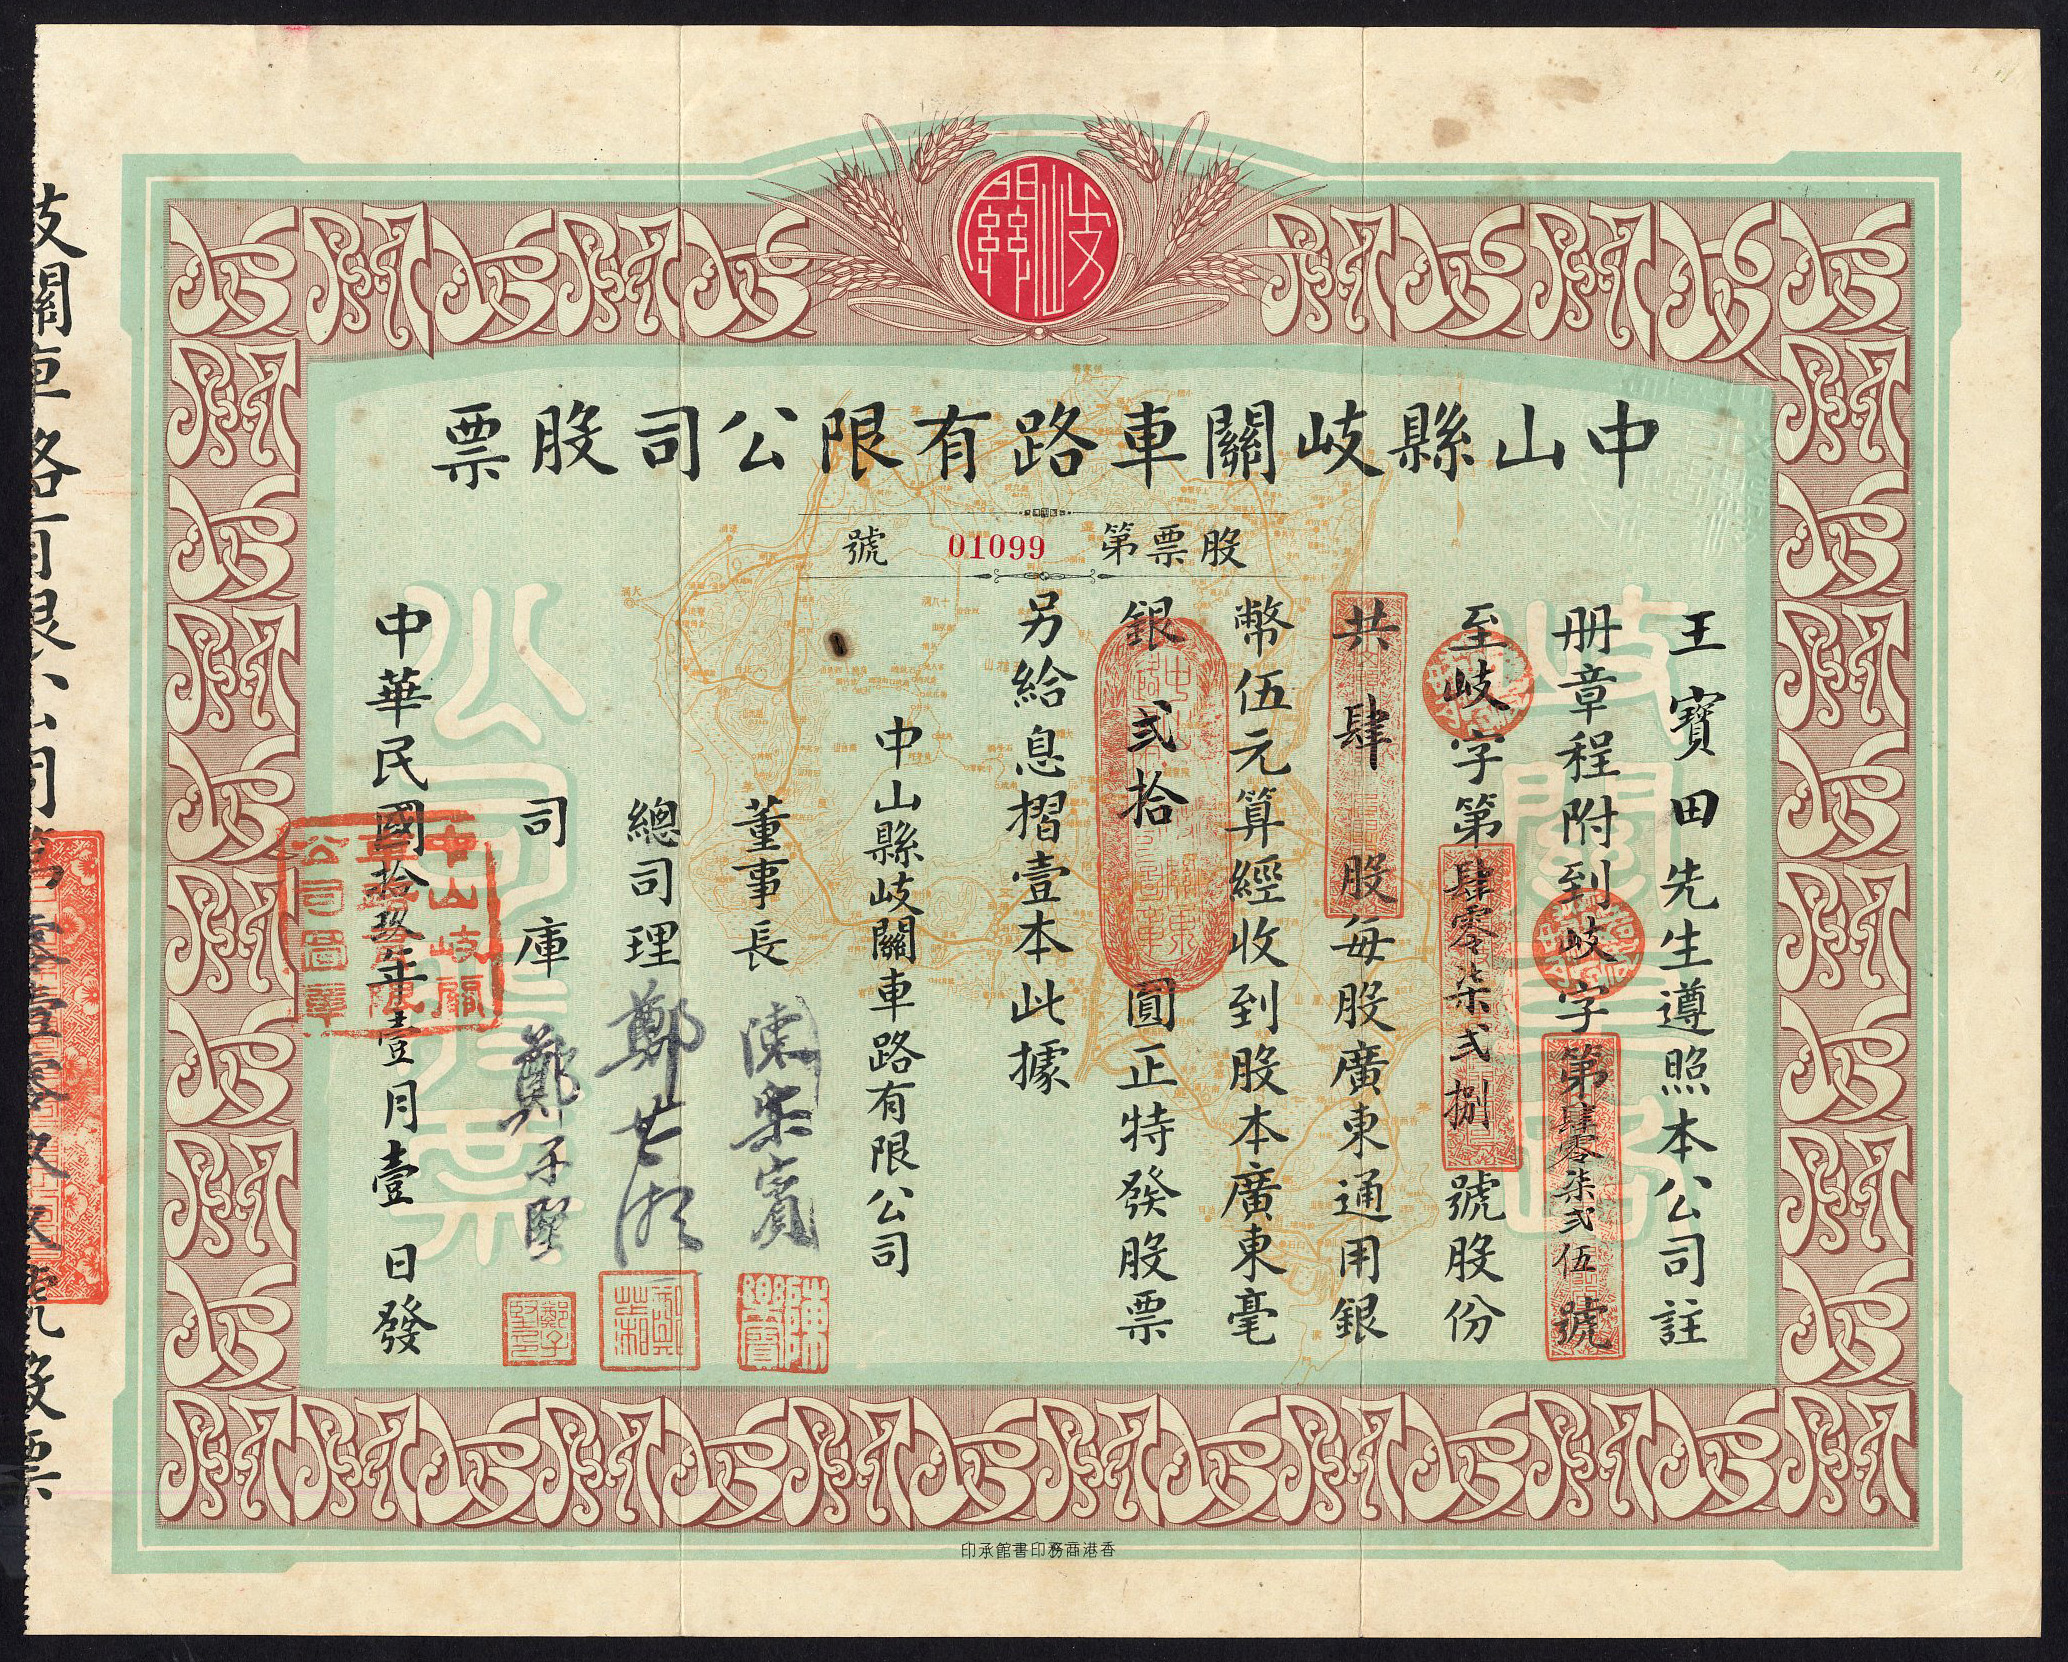 岐關
中山縣岐關車路有限公司股票
股票第 01099 號
王寶田先生遵照本公司註
册章程附到岐字第肆零柒弍伍號
至岐字第肆零柒弍捌號股份
共肆股每股廣東通用銀
幣伍元算經收到股本廣東毫
銀弍拾圓正特發股票
另給息摺壹本此據
中山縣岐關車路有限公司
董事長 陳樂賓
總司理 鄭芷湘
司庫 鄭子堅
中華民國拾玖年壹月壹日發
岐關車路
公司股票
中山岐關車路有限公司圖章
岐關車路有限公司第零壹零玖玖號股票
香港商務印書館承印